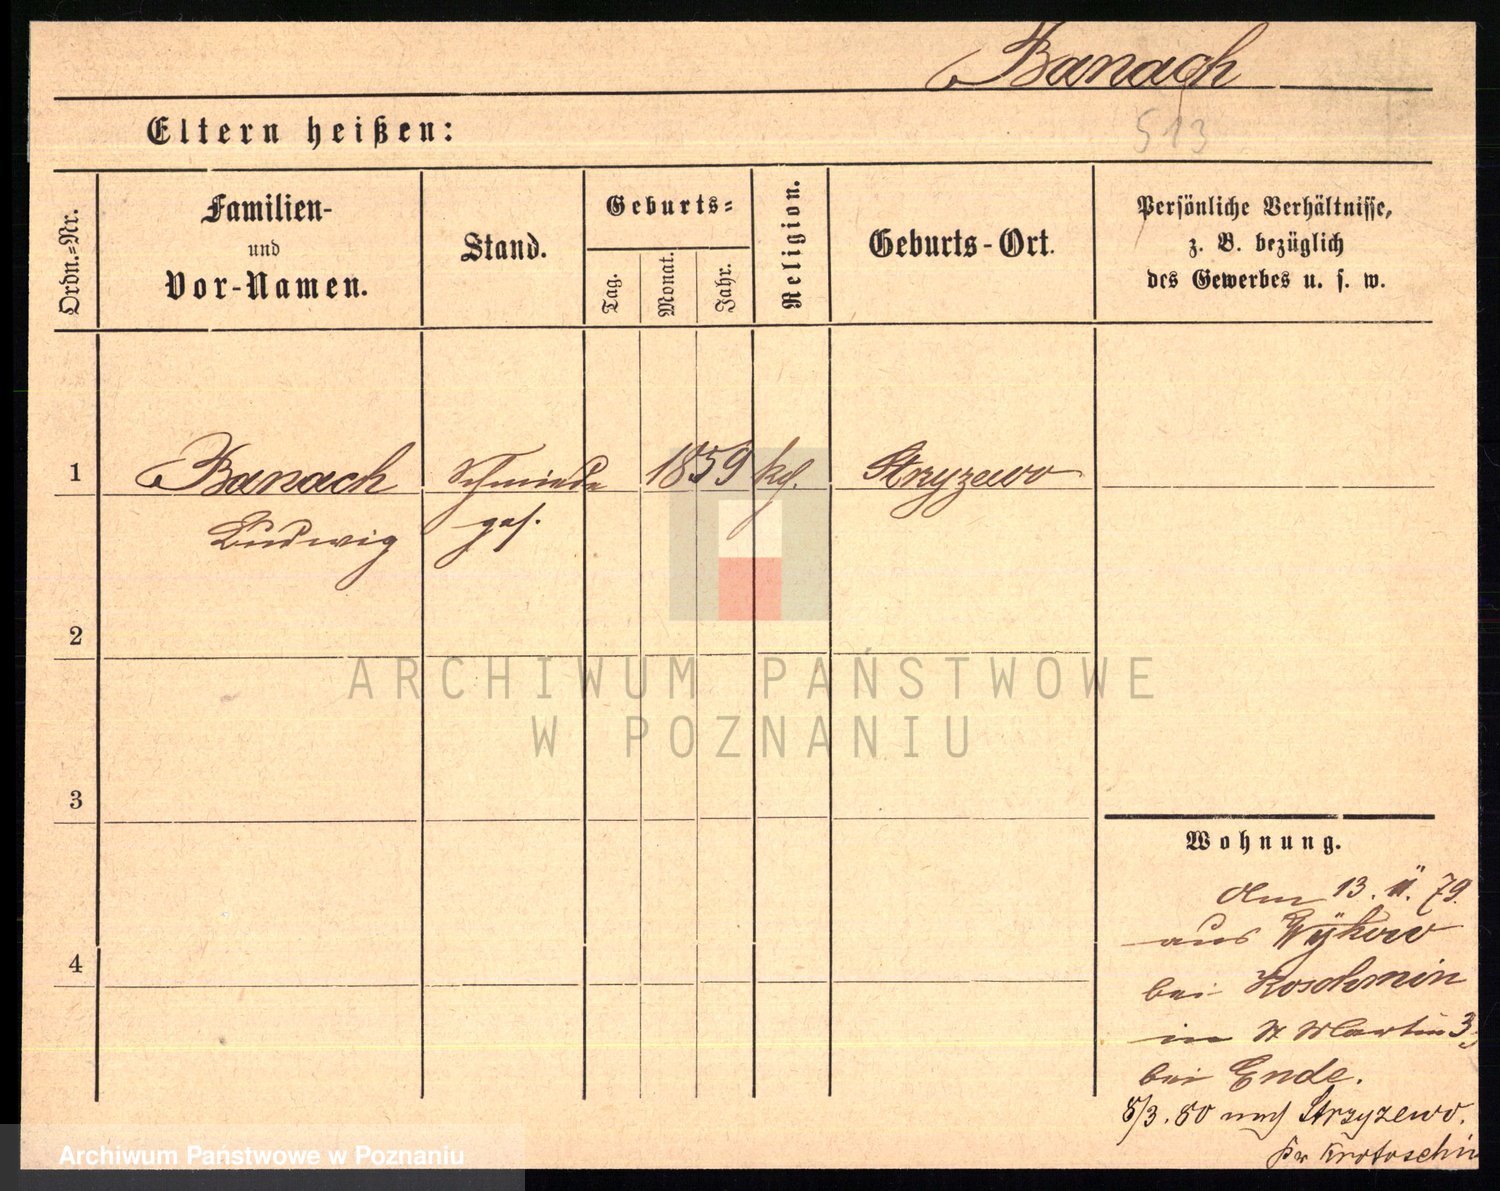 Banach
513
Eltern heißen:
Ordn.-Nr.
Familien-
und
Vor-Namen.
Stand.
Geburts-
Tag.
Monat.
Jahr.
Religion.
Geburts-Ort.
Persönliche Verhältnisse,
z. B. bezüglich
des Gewerbes u. s. w.
1 Banach Schmiede 1859 kf. Stryzewo
Ludwig ges.
2
ARCHIWUM PAŃSTWOWE
W POZNANIU
3
Wohnung.
13. 11. 79.
aus
4
bei Koschmin
in St Martin
bei Ende.
8/3. 80 nach Strzyzewo.
Kr Krotoschin
Archiwum Państwowe w Poznaniu